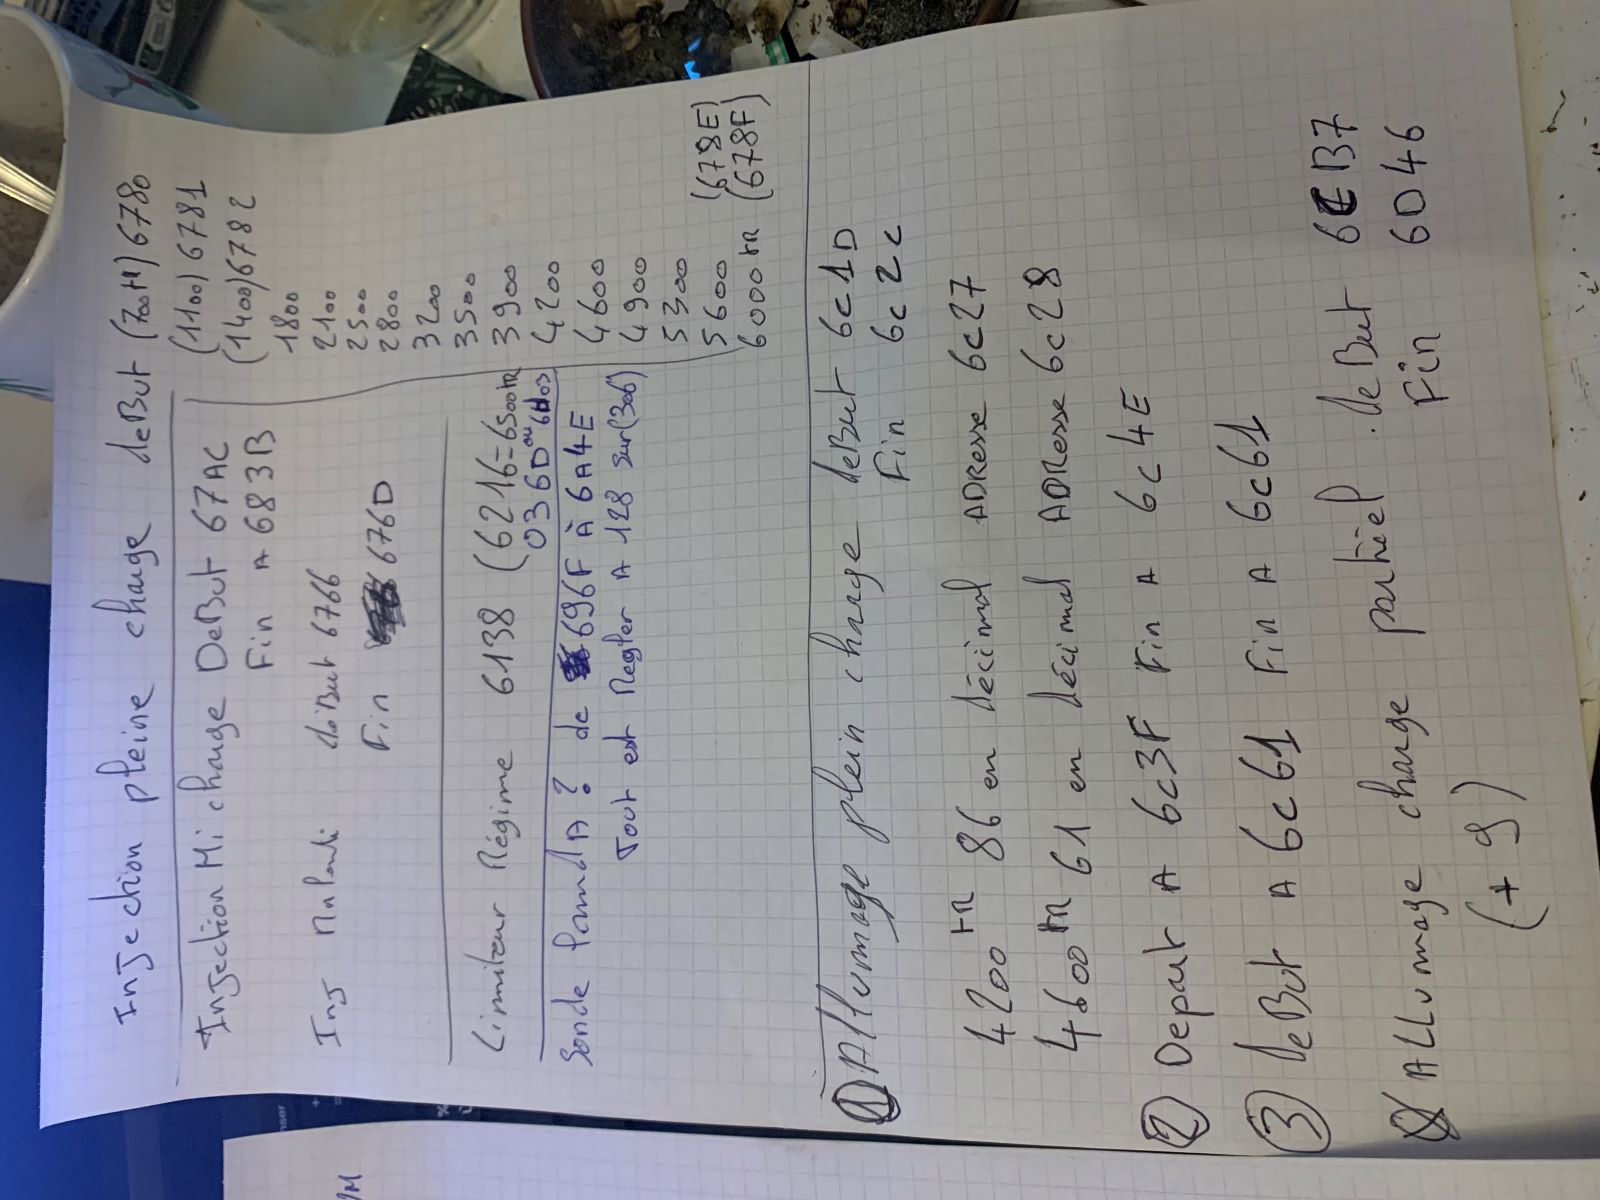 Injection pleine charge deBut (700tr) 6780
(1100) 6781
(1400) 6782
1800
2100
2500
2800
3200
3500
3900
4200
4600
4900
5300
5600 (678E)
6000 tR (678F)
Injection Mi charge DeBut 67AC
Fin A 683B
Inj deBut 6766
Fin 676D
Limiteur Régime 6138 (6216=6500tR
036D ou
Sonde lamdA? de 696F À 6A4E
Tout est Regler A 128 sur(306)
1 Allumage plein charge deBut 6c1D
Fin 6c2c
4200 tR 86 en décimal ADResse 6c27
4600 tR 61 en décimal ADResse 6c28
2 Depart A 6c3F Fin A 6c4E
3 deBut A 6c61 Fin A 6c61
ALLumage charge partiel deBut 6CB7
(+9) Fin 6D46